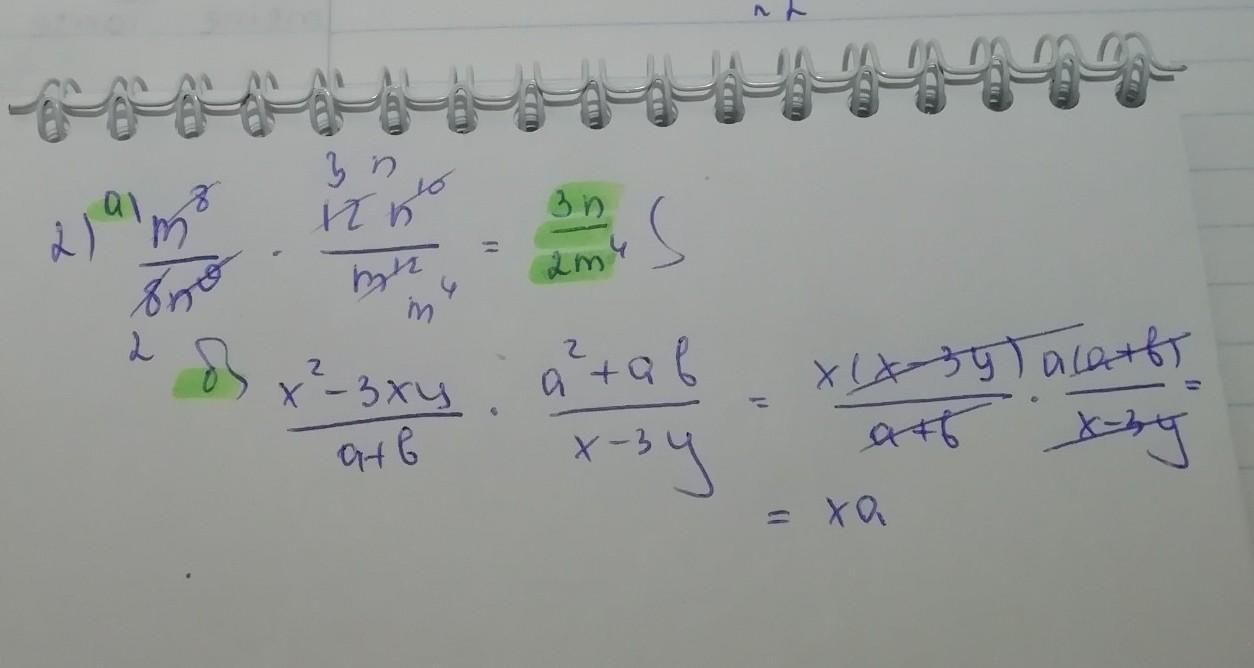 2) а) m⁸/8n⁹ · 12n¹⁰/m¹² = 3n/2m⁴
3 n
2 m⁴
б) x²-3xy/a+b · a²+ab/x-3y = x(x-3y)/a+b · a(a+b)/x-3y =
= xa